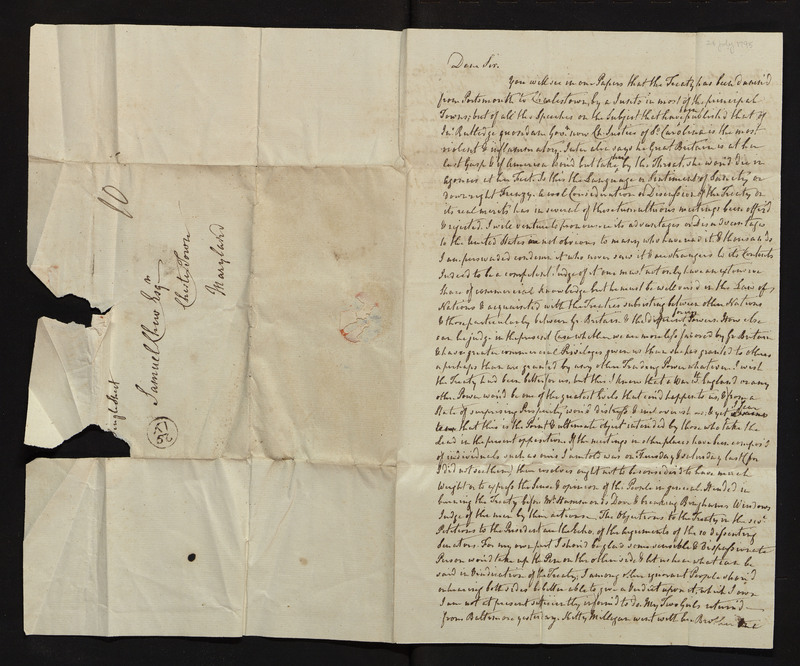 10
Single Sheet
Samuel Chew Esqr
Chester Town
Maryland
25
28 July 1795
Dear Sir.
You will see in our Papers that the Treaty has been damn'd
from Portsmouth to Charlestown, by a in most of the principal
Towns; but of all the Speeches on the Subject that have been published that of
Jn. Rutledge quondam Govr. now Ch. Justice of So. Carolina is the most
violent & inflammatory. Inter alia says he Great Britain is at her
last Gasp & if America wou'd but take her by the Throat, she wou'd die in
agonies at her Feet. Is this the Language or Sentiments of Sobriety or
downright Frenzy. A cool Consideration or Discussion of the Treaty or
its real merits has in several of those tumultuous meetings been offer'd
& rejected. I will venture to pronounce its advantages or Disadvantages
to the United States not obvious to many who have read it & thousands
I am persuaded condemn it who never saw it & are strangers to its Contents
Indeed to be a competent Judge of it one must not only have an extensive
share of commercial Knowledge but he must be well vers'd in the Laws of
Nations & acquainted with the Treaties subsisting between other Nations
& those particularly between Gr. Britain & the different foreign Powers. How else
can he judge in the present Case whether we are more or less favored by Gr. Britain
& have greater commercial Privileges given us than she has granted to others
or perhaps than are granted by any other Trading Power whatever. I wish
the Treaty had been better for us, but this I know that a War with England or any
other Power wou'd be one of the greatest Evils that could happen to us, & from a
State of surprising Prosperity wou'd distress & ruin us; & yet I fear
that this is the Point & ultimate object intended by those who take the
lead in the present opposition. If the meetings in other places have been compos'd
of individuals such as ours I am told was on Thursday & Saturday last (for
I did not see them) their resolves ought not to be consider'd to have much
weight or to express the Sense & opinion of the People in general. Ended in
burning the Treaty before Mr. Hammonds Door & breaking Binghams Windows
Judge of the men by their actions. The Objections to the Treaty in the sevl.
Petitions to the President are the Echo of the arguments of the 10 dissenting
Senators. For my own part I shou'd be glad some sensible & Dispassionate
Person wou'd take up the Pen on the other side & let us hear what can be
said in Vindication of the Treaty; I among other ignorant People shou'd
on hearing both sides be better able to give a Verdict upon it, which I own
I am not at present sufficiently inform'd to do. My Two Girls return'd
from Baltimore yesterday. Kitty Milligan went with her Brother